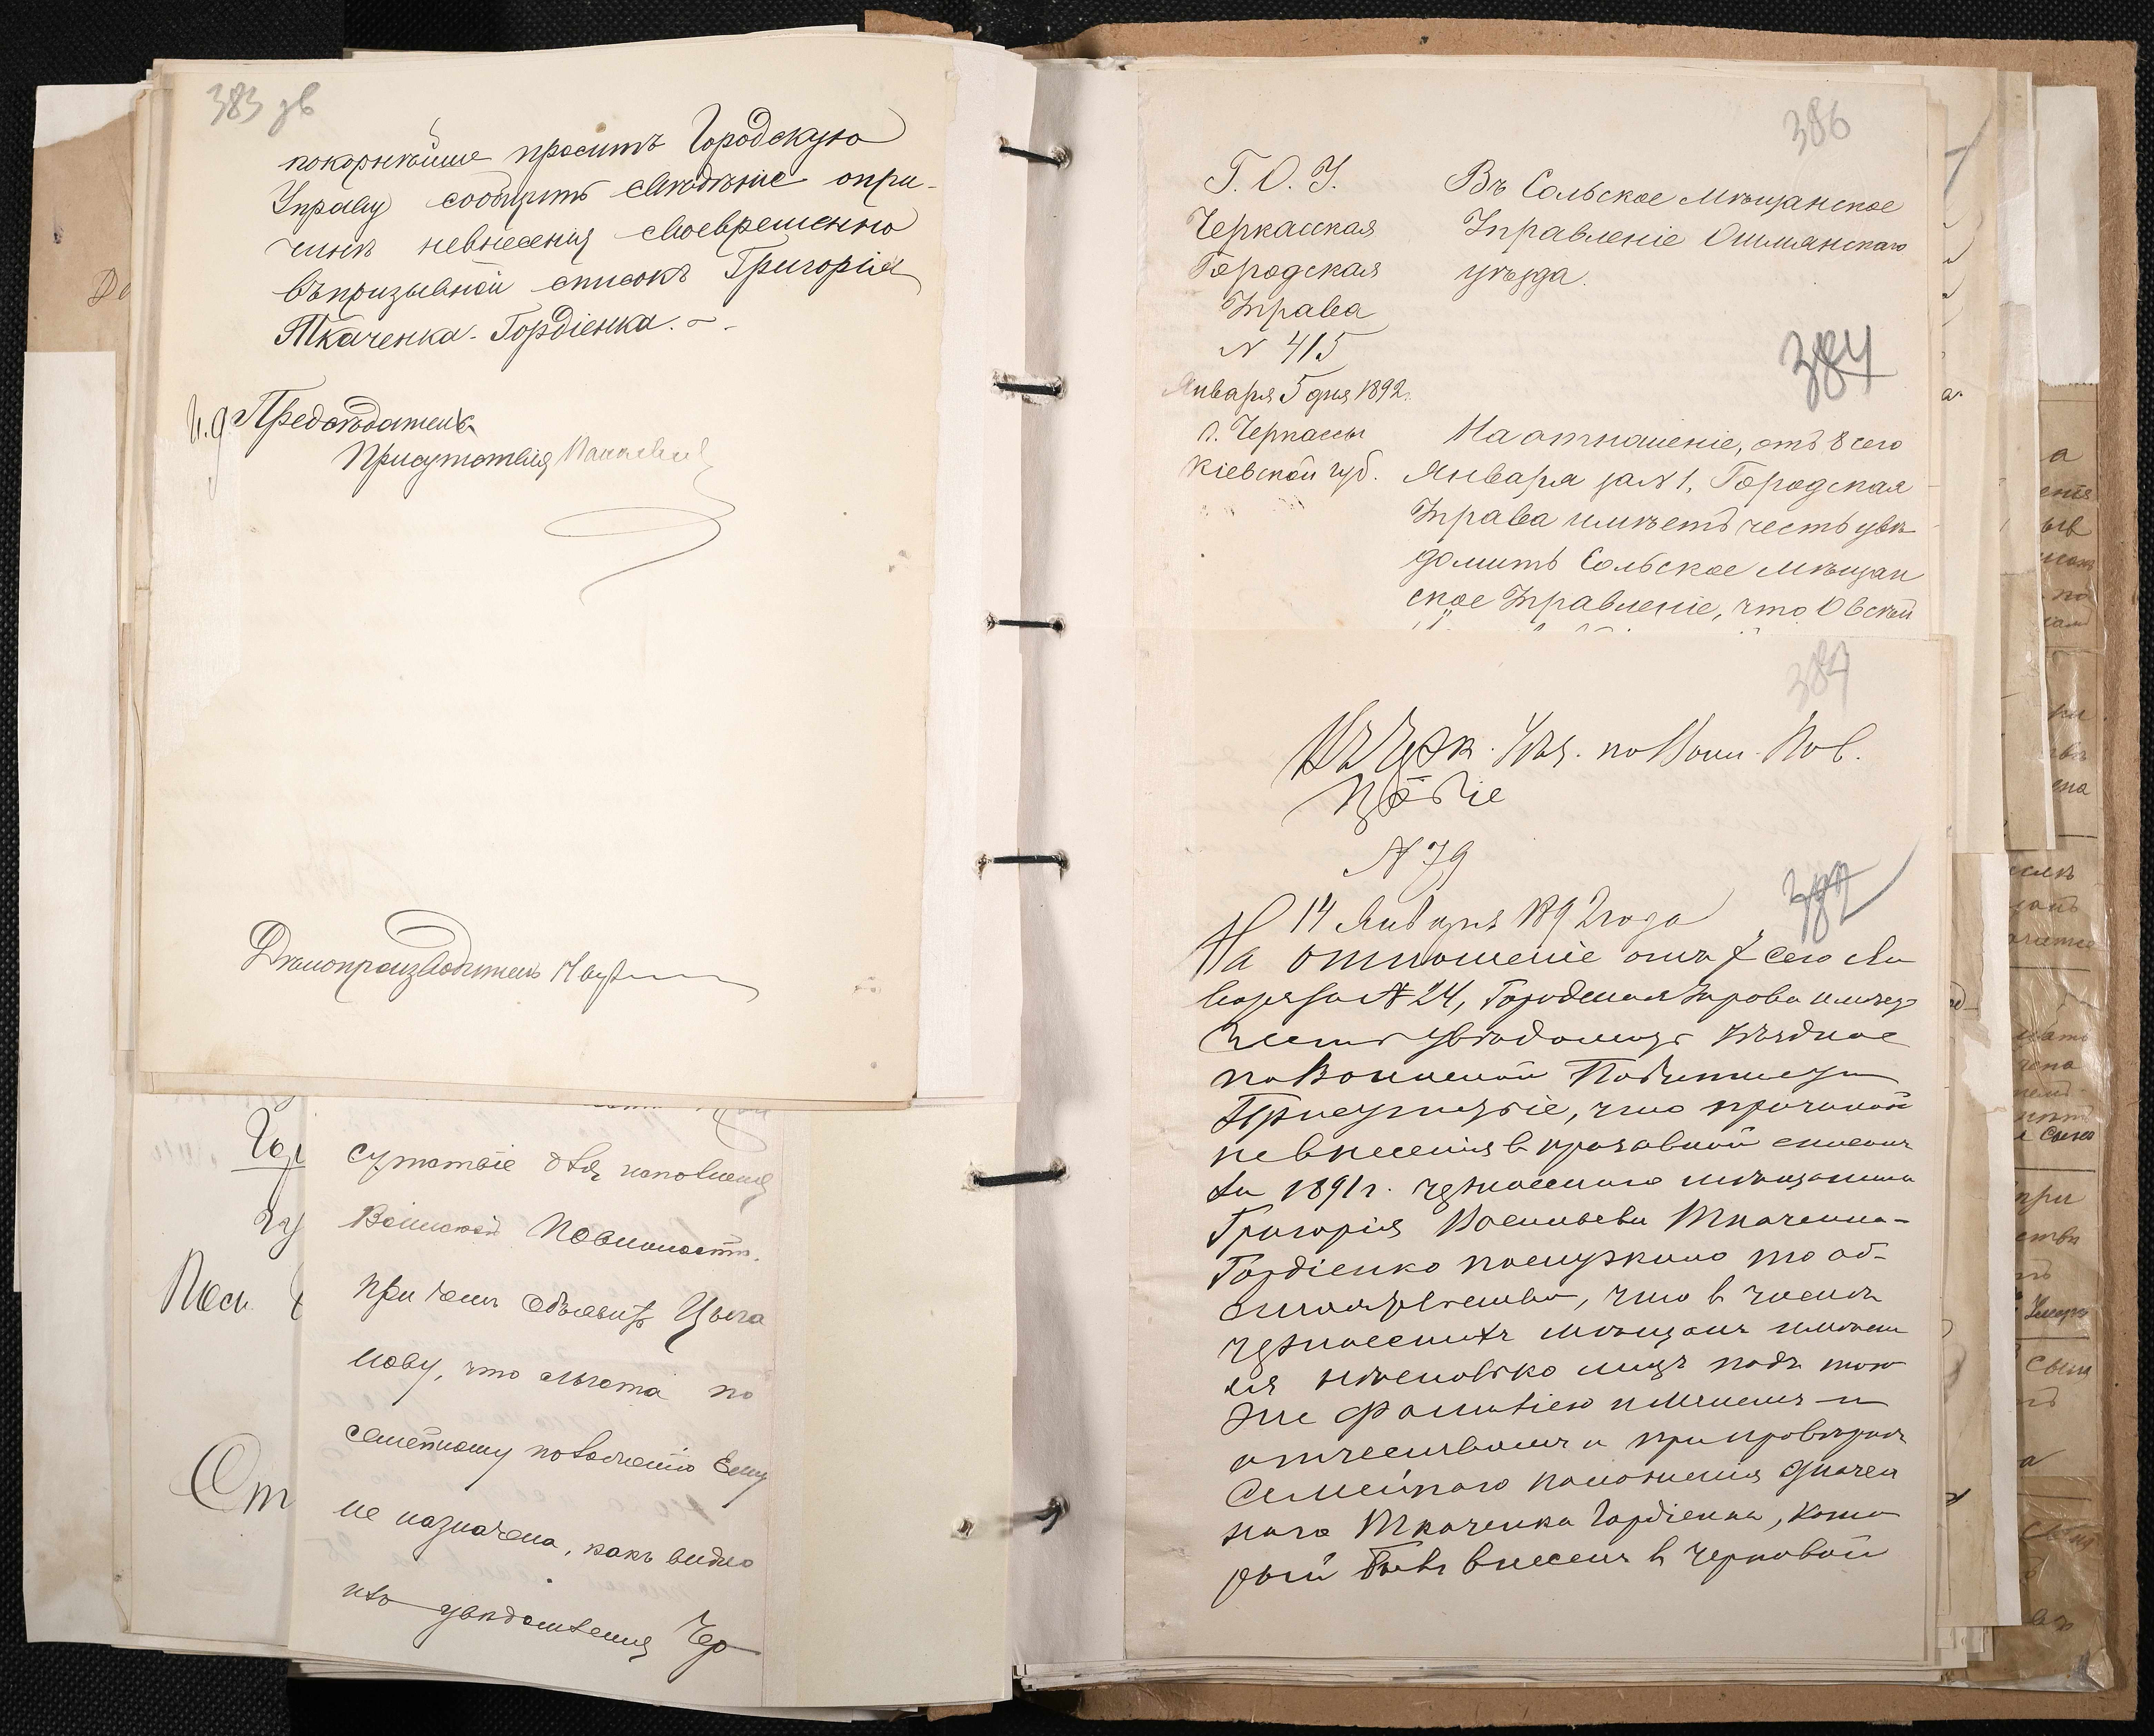 383 зв
покорнѣйше проситъ Городскую
Управу сообщить свѣдѣніе о при-
чинѣ невнесенія своевременно
въ призывной списокъ Григорія
Ткаченка-Гордіенка.
И.д. Предсѣдатель
Присутствія
Дѣлопроизводитель
сутствіе для исполненія
Воинской Повинности.
при чемъ объявить Цыга
нову, что льгота по
семейному положенію Ему
не назначена, какъ видно
изъ увѣдомленія Чер
386
Г. О. У.
Черкасская
Городская
Управа
N 415
Января 5 дня 1892 г.
г. Черкассы
Кіевской губ.
Въ Сольское Мѣщанское
Управленіе Ошмянскаго
уѣзда.
384
На отношеніе, отъ 8 сего
Января за N 1, Городская
Управа имѣетъ честь увѣ
домить Сольское Мѣщан
ское Управленіе, что Овсѣй
387
Въ Черк. Уѣз. по Воин. Пов.
N 79
14 Января 1892 года
На отношеніе отъ 7 сего Ян
варя за N 24, Городская Управа имѣетъ
честь увѣдомить Уѣздное
по Воинской Повинности
Присутствіе, что причиной
невнесенія в призывной списокъ
за 1891 г. черкасскаго мѣщанина
Григорія Васильева Ткаченка-
Гордіенко послужило то об-
стоятельство, что в числѣ
черкасскихъ мѣщанъ имѣет
ся нѣсколько лицъ подъ тою
же фамиліею именемъ и
отчествомъ и при провѣркѣ
Семейнаго положенія означен
наго Ткаченка Гордіенка, кото
рый былъ внесенъ в черновой